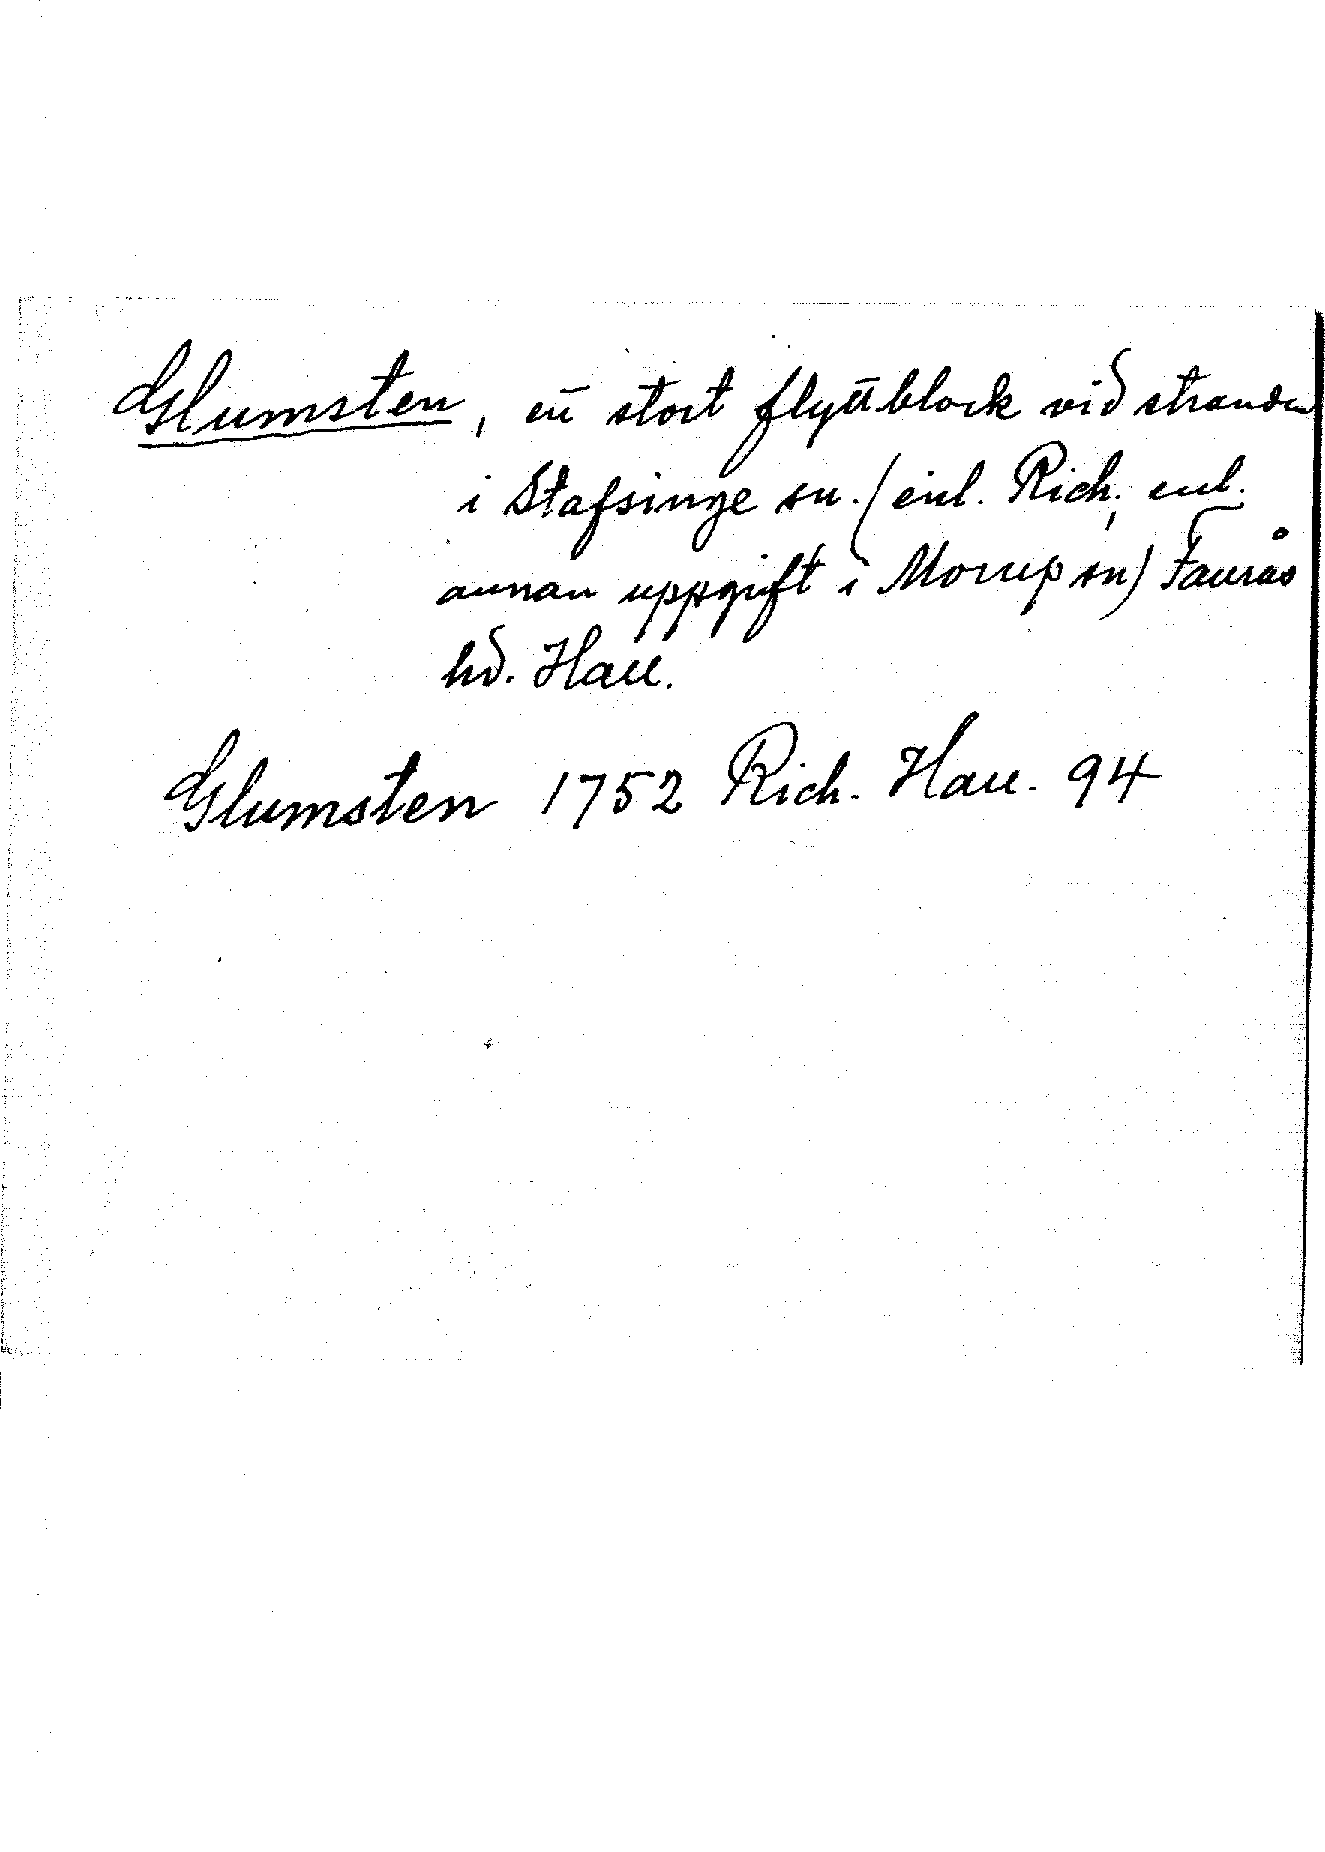 Glumsten, ett stort flyttblock vid stranden
i Stafsinge sn. (enl. Rich., enl.
annan uppgift i Morup sn) Faurås
hd. Hall.
Glumsten 1752 Rich. Hall. 94